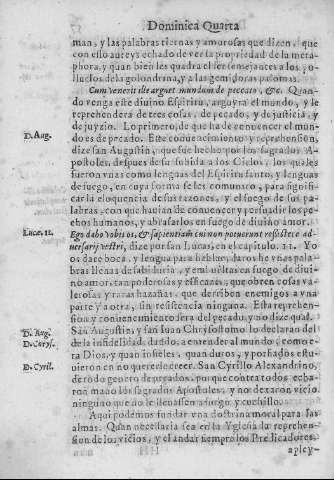 Dominica Quarta
man, y las palabras tiernas y amorosas que dizen, que
con ello aureys echado de ver la propiedad de la meta-
phora, y quan bien les quadra el ser semejantes a los
lluelos de la golondrina, y a las gemidoras palomas.
Cum venerit ille arguet mundum de peccato, &c. Quan-
do venga este diuino Espiritu, arguyra el mundo, y le
reprehendera de tres cosas, de pecado, y de justicia, y
de juyzio. Lo primero, de que ha de conuencer el mun-
D. Aug. do es de pecado. Este conuencimiento y reprehension,
dize san Augustin, que fue hecho por los sagrados A-
postoles, despues de la subida a los Cielos, los quales
fueron vnas como lenguas del Espiritu santo, y lenguas
de fuego, en cuya forma se les comunico, para signifi-
car la eloquencia de sus razones, y el fuego de sus pa-
labras, con que hauian de conuencer y persuadir los pe-
chos humanos, y abrasarlos en fuego de diuino amor.
Lucæ. 21. Ego dabo vobis os, & sapientiam cui non poterunt resistere ad-
uersarij vestri, dize por san Lucas, en el capitulo. 21. Yo
os dare boca, y lengua para hablar, daros he vnas pala-
bras llenas de sabiduria, y embueltas en fuego de diui-
no amor, tan poderosas y eficaces, que obren cosas va-
lerosas y raras hazañas, que derriben enemigos a vna
parte y a otra, sin resistencia ninguna. Esta reprehen-
sion y conuencimiento sera del pecado, y no dize qual.
D. Aug. San Augustin, y san Iuan Chrysostomo lo declaran del
D. Chrys. de la infidelidad, dando a entender al mundo, como e-
ra Dios, y quan infieles, quan duros, y porfiados estu-
D. Cyril. uieron en no querer le creer. San Cyrillo Alexandrino,
de todo genero de pecados, porque contra todos echa-
ron mano los sagrados Apostoles, y no dexaron vicio
ninguno que no le lleuassen a fuego y cuchillo.
Aqui podemos fundar vna doctrina moral para las
almas. Quan necessaria sea en la Yglesia la reprehen-
sion de los vicios, y el andar siempre los Predicadores
apley-